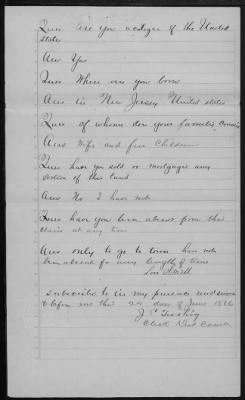 Ques Are you a citizen of the United
States
Ans Yes
Ques Where were you born
Ans in New Jersey United states
Ques of whome dou your famile consis
Ans Wife and five Children
Ques have you sold or mortgages any
portion of this land
Ans No I have not
Ques have you been absent from this
claim at any time
Ans only to go to town have not
been absent for any length of time
subscribe to in my presence and sworn
to before me this 24 day of June 1886
J C
Clerk Dist Court